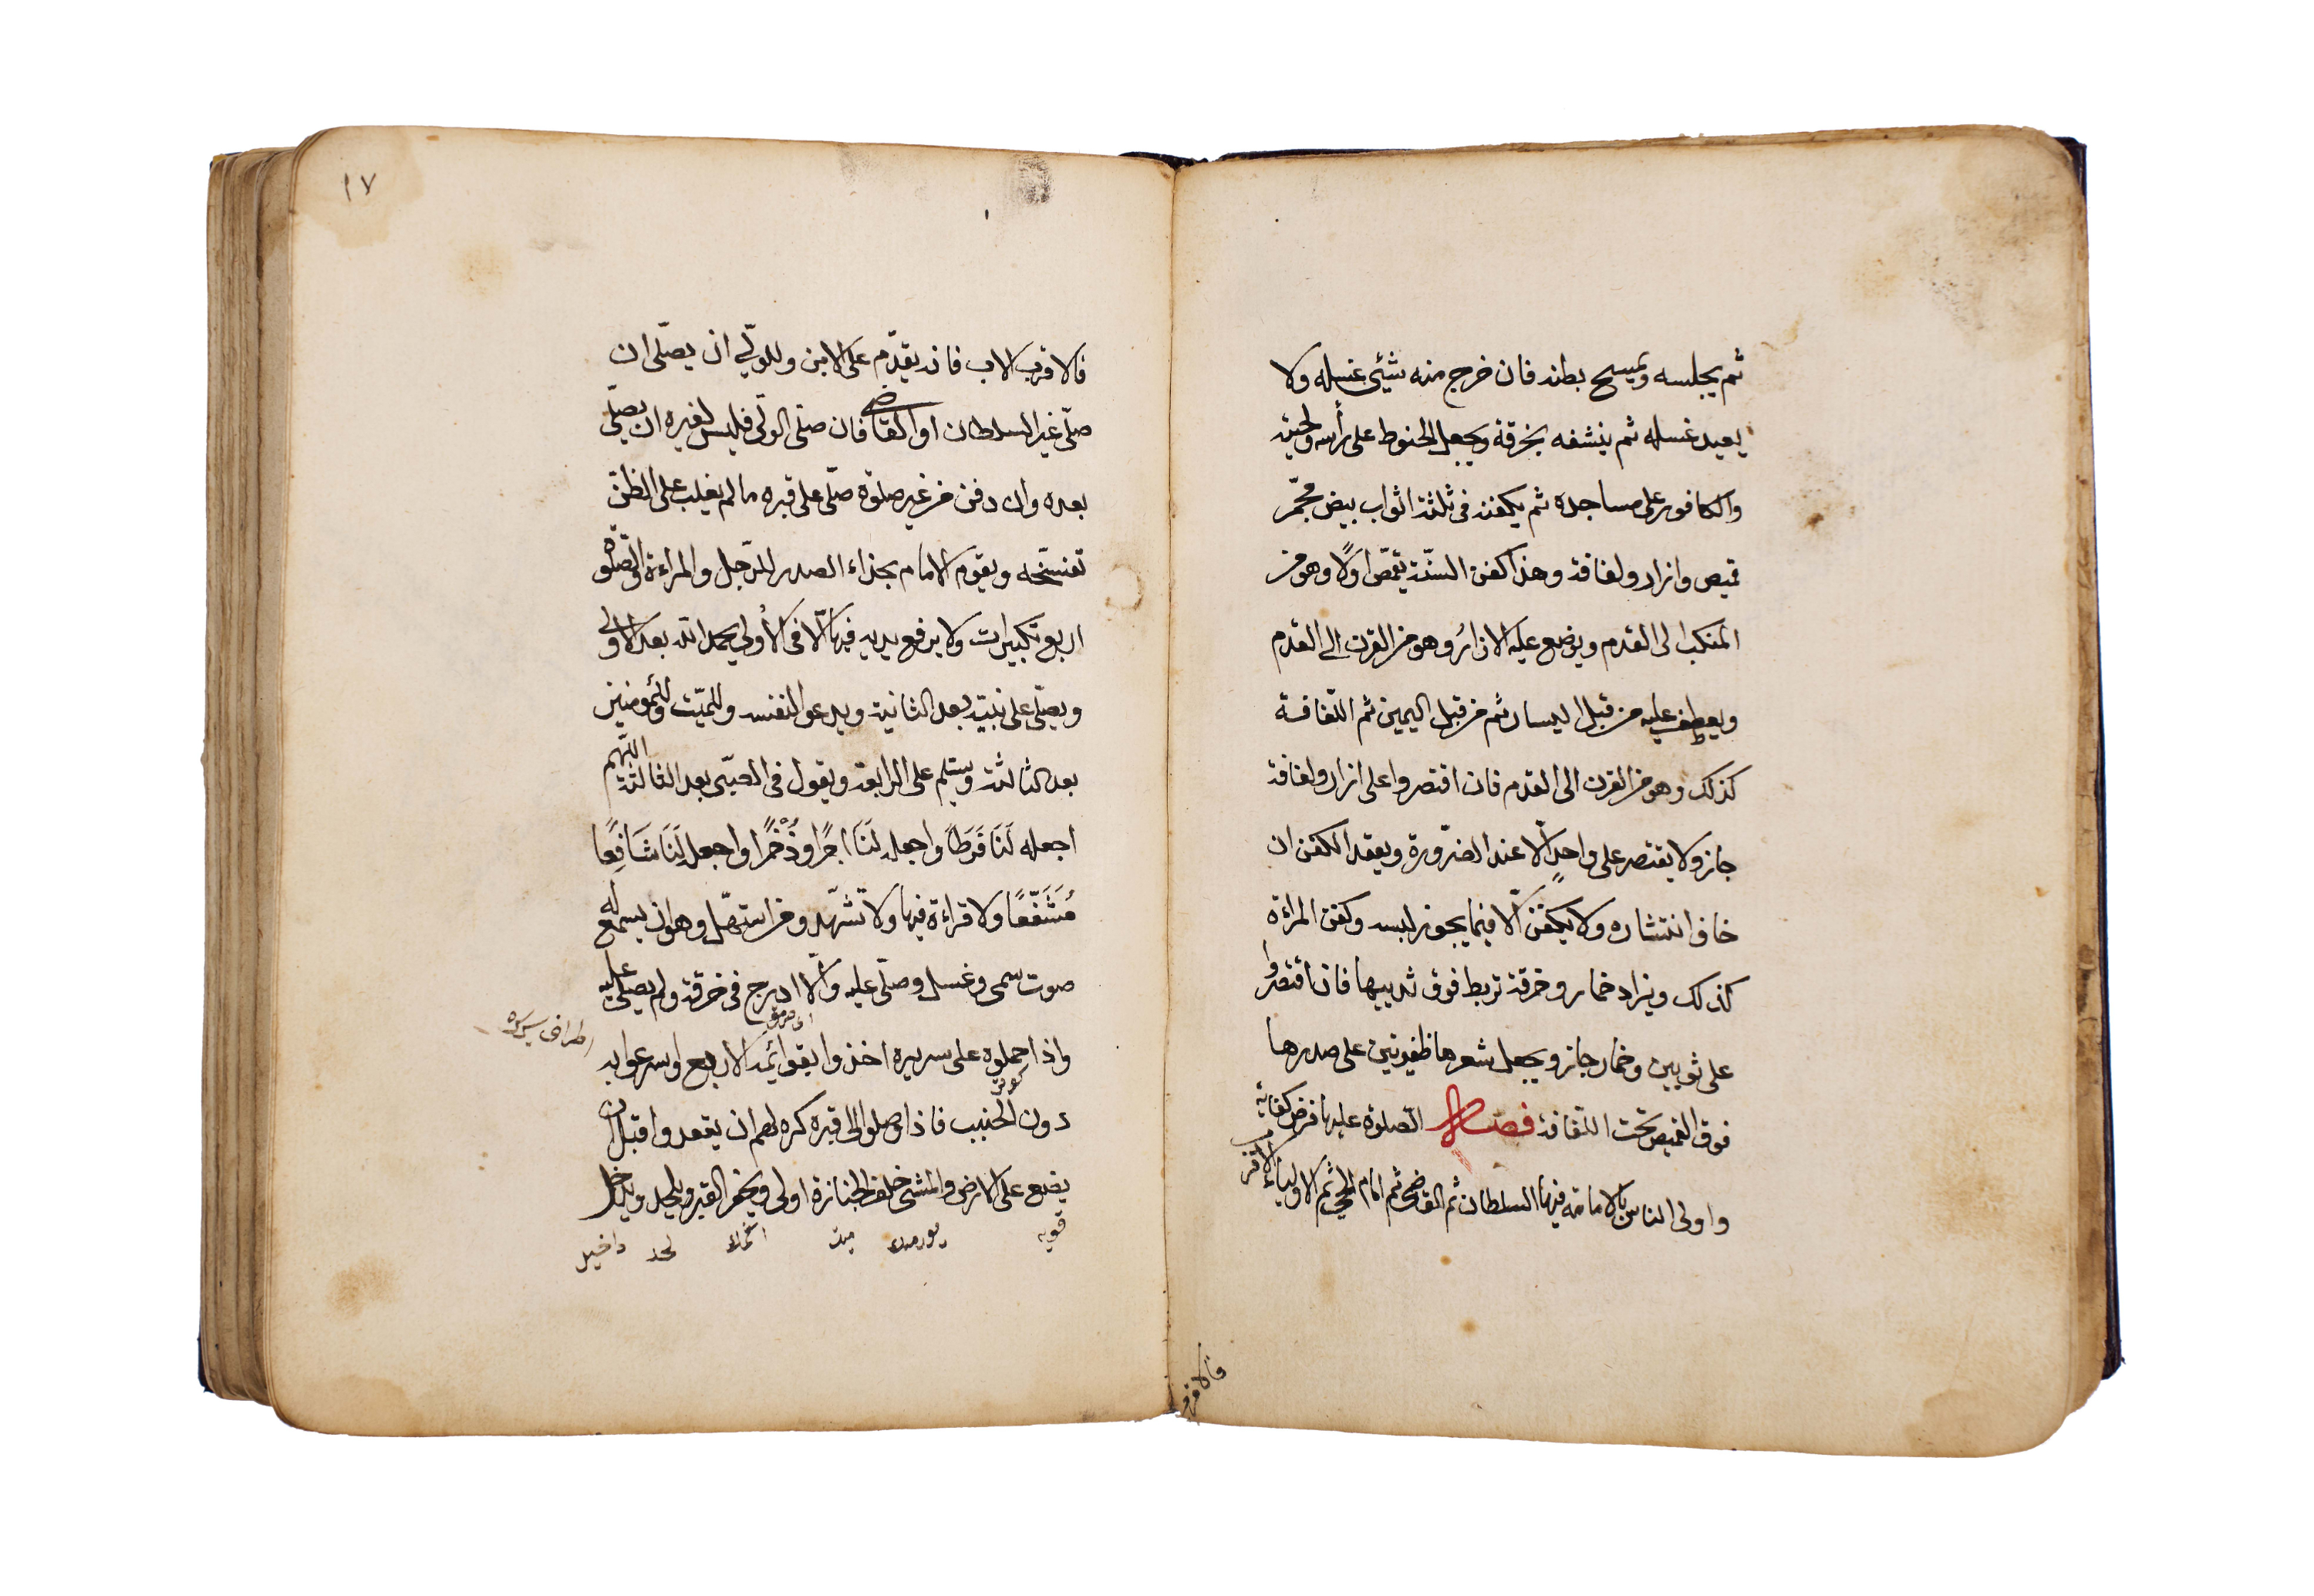 ثم يجلسه ويمسح بطنه فان خرج منه شئ غسله ولا
يعيد غسله ثم ينشفه بخرقة ويجعل الحنوط على رأسه ولحيته
والكافور على مساجده ثم يكفنه فى ثلثة اثواب بيض مجمّر
قميص وازار ولفافة وهذا كفن السنّة يقمّص اولًا وهو من
المنكب الى القدم ويوضع عليه الازارُ وهو من القرن الى القدم
ويعطف عليه من قبل اليسار ثم من قبل اليمين ثم اللّفافة
كذلك وهو من القرن الى القدم فان اقتصروا على ازار ولفافة
جاز ولا يقتصر على واحدٍ الّا عند الضّرورة ويعقد الكفن ان
خافوا انتشاره ولا يكفّن الّا فيما يجوز لبسه وكفن المراءة
كذلك ويزاد خمار وخرقة تربط فوق ثدييها فان اقتصروا
على ثوبين وخمار جاز ويجعل شعرها ظفيرتين على صدرها
فوق القميص تحت اللّفافة فصل الصّلوة عليها فرض كفاية
واولى الناس بالامامة فيها السلطان ثم القاضى ثم امام الحىّ ثم الاولياء الاقرب
فالاقرب
١٧
فالاقرب الاب فانه يقدّم على الابن وللولّي ان يصلّى ان
صلّى غير السلطان او القاضى فان صلّى الولّى فليس لغيره ان يصلّى
بعده وان دفن من غير صلوة صلّى على قبره ما لم يغلب على الظنّ
تفسّخه ويقوم الامام بحذاء الصدر للرّجل والمراءة والصّلوة
اربع تكبيرات ولا يرفع يديه فيها الّا فى الأولى يحمد الله بعد الاولى
ويصلّى على نبيّه بعد الثانية ويدعو لنفسه وللميّت وللمؤمنين
بعد الثالثة ويسلّم على الرابعة ويقول فى الصبّى بعد الثالثة اللّهم
اجعله لَنَا فَرَطًا واجعله لَنَا اجرًا وذُخْرًا واجعله لَنَا شَافِعًا
مُشَفَّعًا ولا قراءة فيها ولا تشهّد ومن استهلّ وهو ان يسمع له
صوت سمى وغسل وصلّى عليه والّا ادرج فى خرقة ولم يصلّى عليه
واذا حملوه على سريره اخذوا بقوائمه الاربع واسرعوا به
دون الخبب فاذا وصلوا الى قبره كره لهم ان يقعدوا قبل ان
يضع على الارض والمشى خلف الجنازة اولى ويحفر القبر ويلحد ويدخل
ميت لحد داخيل